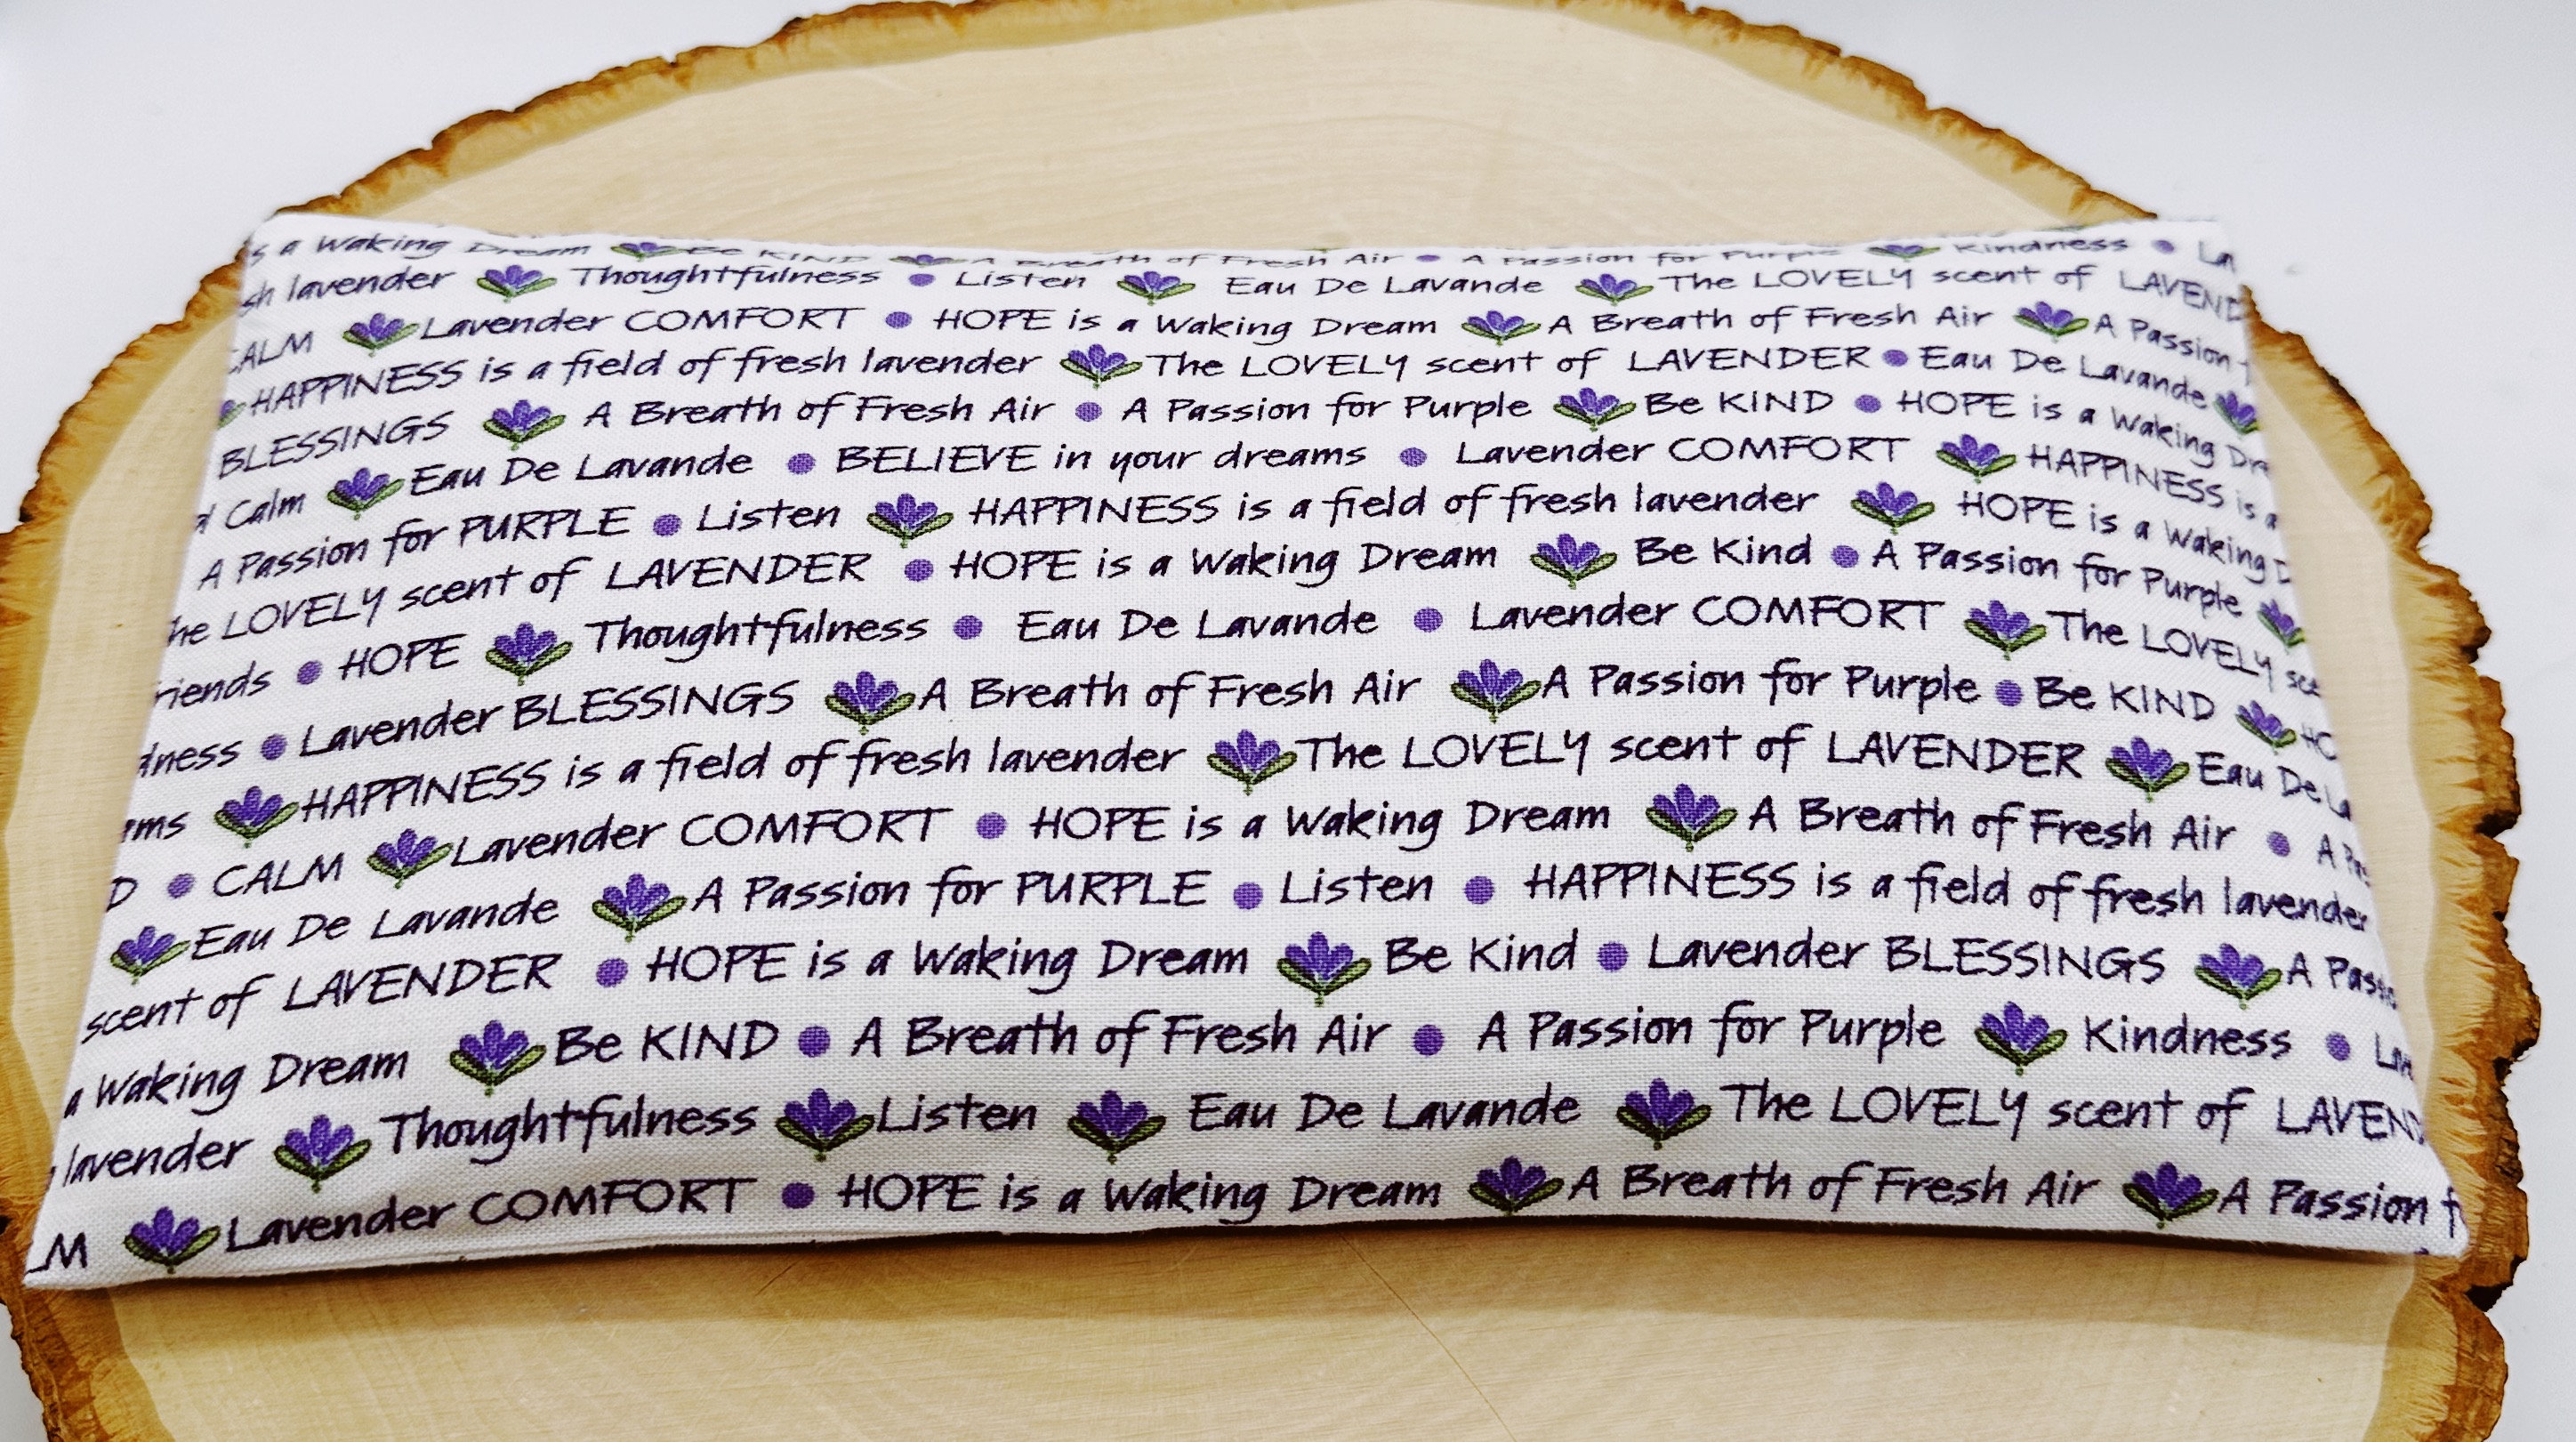 a Waking Dream Be KIND A Breath of Fresh Air A Passion for Purple Kindness
lavender Thoughtfulness Listen Eau De Lavande The LOVELY scent of LAVEND
ALM Lavender COMFORT HOPE is a Waking Dream A Breath of Fresh Air A Passion
HAPPINESS is a field of fresh lavender The LOVELY scent of LAVENDER Eau De Lavande
BLESSINGS A Breath of Fresh Air A Passion for Purple Be KIND HOPE is a Waking Dre
Calm Eau De Lavande BELIEVE in your dreams Lavender COMFORT HAPPINESS is a
A Passion for PURPLE Listen HAPPINESS is a field of fresh lavender HOPE is a Waking D
he LOVELY scent of LAVENDER HOPE is a Waking Dream Be Kind A Passion for Purple
riends HOPE Thoughtfulness Eau De Lavande Lavender COMFORT The LOVELY sce
dness Lavender BLESSINGS A Breath of Fresh Air A Passion for Purple Be KIND HO
ms HAPPINESS is a field of fresh lavender The LOVELY scent of LAVENDER Eau De La
D CALM Lavender COMFORT HOPE is a Waking Dream A Breath of Fresh Air A Pas
Eau De Lavande A Passion for PURPLE Listen HAPPINESS is a field of fresh lavender
scent of LAVENDER HOPE is a Waking Dream Be Kind Lavender BLESSINGS A Passi
a Waking Dream Be KIND A Breath of Fresh Air A Passion for Purple Kindness Lav
lavender Thoughtfulness Listen Eau De Lavande The LOVELY scent of LAVEN
M Lavender COMFORT HOPE is a Waking Dream A Breath of Fresh Air A Passion f